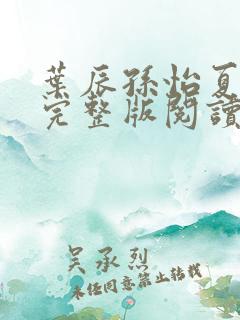 葉辰孫怡夏
完整版閱讀
吴承烈
未经同意禁止转载